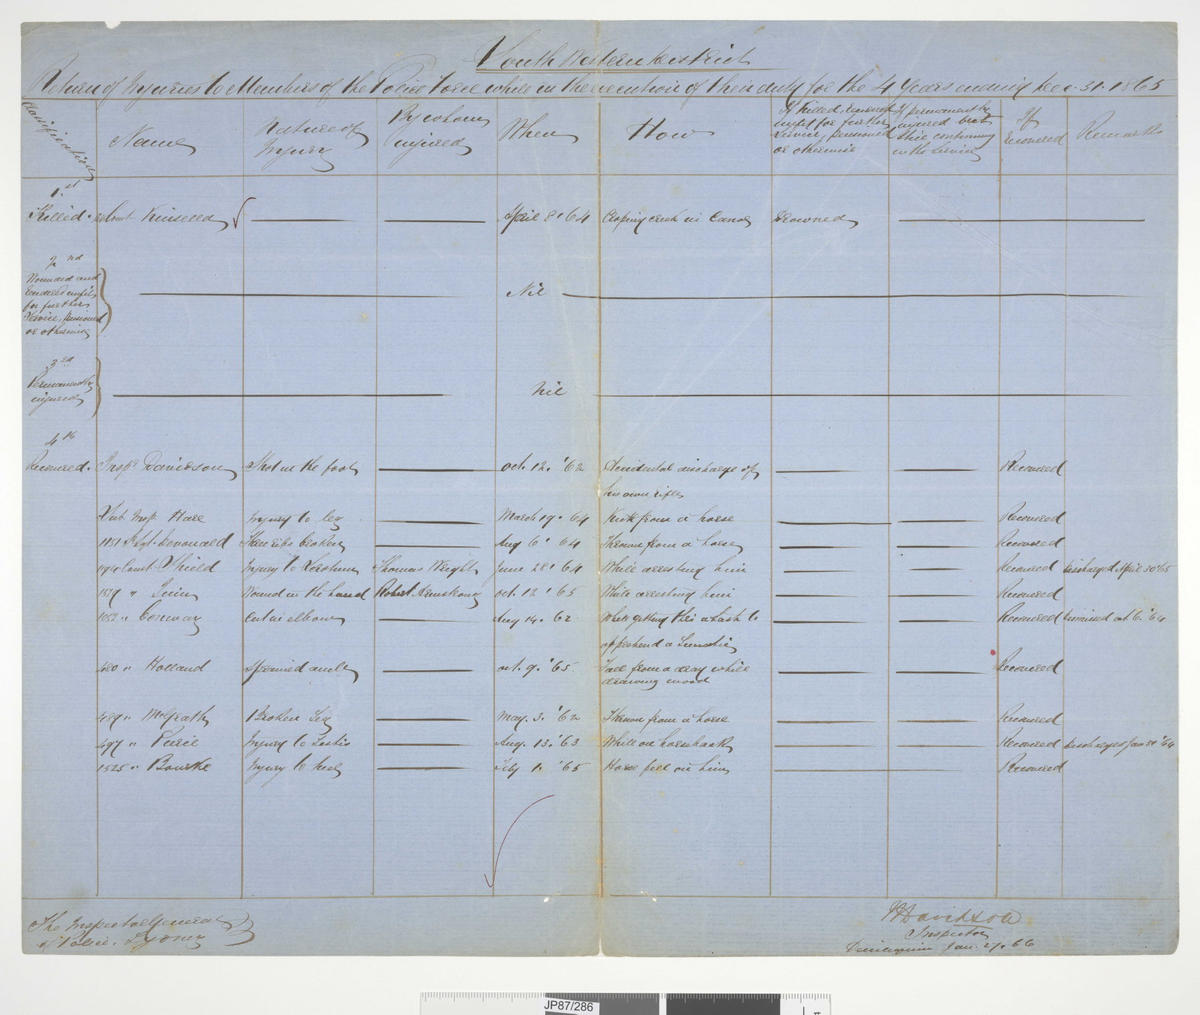 South Western District
Return of Injuries to Members of the Police Force while in the execution of their duty for the 4 Years ending Dec. 31. 1865
Classification
Name
Nature of Injury
By whom injured
When
How
If Killed, rendered unfit for further Service, pensioned or otherwise
If permanently injured but still continuing in the Service
If recovered
Remarks
1st
Killed. Const Kinsered April 8 '64 Crossing creek in Canoe Drowned
2nd
Wounded and
rendered unfit
for further
Service, pensioned
or otherwise
Nil
3rd
Permanently
injured
Nil
4th
Recovered. Inspr Davidson Shot in the foot Oct. 12. '62 Accidental discharge of
his own rifle Recovered
Sub Insp. Hare Injury to leg March 19. 64 Kick from a horse Recovered
Sgt. Three ribs broken Aug 6. 64 Thrown from a horse Recovered
Const Shield Injury to Thomas Wright June 28 '64 While arresting him Recovered Discharged April 30 '65
" Quin Wound in the hand Robert Armstrong Oct. 12 '65 While arresting him Recovered
1052 " Conway Cut in elbow Aug 14. '62 While getting thro' a hash to
apprehend a Lunatic Recovered Dismissed Oct 6. '64
480 " Holland Sprained ancle Oct. 9. '65 Fall from a dray while
drawing wood Recovered
489 " McGrath Broken Leg May. 3. '62 Thrown from a horse Recovered
497 " Purie Injury to Testis Aug. 13. '63 While on horseback Recovered Discharged Jan 31 '64
1525 " Bourke Injury to heel Feby 1. '65 Horse fell on him Recovered
The Inspector General
of Police. Sydney
Davidson
Inspector
Deniliquin Jan. 27. 66
JP87/286